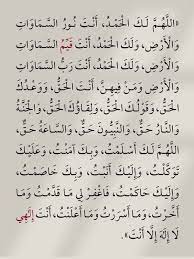 «اللَّهُمَّ لَكَ الْحَمْدُ، أَنْتَ نُورُ السَّمَاوَاتِ
وَالْأَرْضِ، وَلَكَ الْحَمْدُ، أَنْتَ قَيِّمُ السَّمَاوَاتِ
وَالْأَرْضِ، وَلَكَ الْحَمْدُ، أَنْتَ رَبُّ السَّمَاوَاتِ
وَالْأَرْضِ، وَمَنْ فِيهِنَّ، أَنْتَ الْحَقُّ، وَوَعْدُكَ
الْحَقُّ، وَقَوْلُكَ الْحَقُّ، وَلِقَاؤُكَ الْحَقُّ، وَالْجَنَّةُ
حَقٌّ، وَالنَّارُ حَقٌّ، وَالنَّبِيُّونَ حَقٌّ، وَالسَّاعَةُ حَقٌّ،
اللَّهُمَّ لَكَ أَسْلَمْتُ، وَبِكَ آمَنْتُ، وَعَلَيْكَ
تَوَكَّلْتُ، وَإِلَيْكَ أَنَبْتُ، وَبِكَ خَاصَمْتُ،
وَإِلَيْكَ حَاكَمْتُ، فَاغْفِرْ لِي مَا قَدَّمْتُ وَمَا
أَخَّرْتُ، وَمَا أَسْرَرْتُ وَمَا أَعْلَنْتُ، أَنْتَ إِلَهِي
لَا إِلَهَ إِلَّا أَنْتَ».